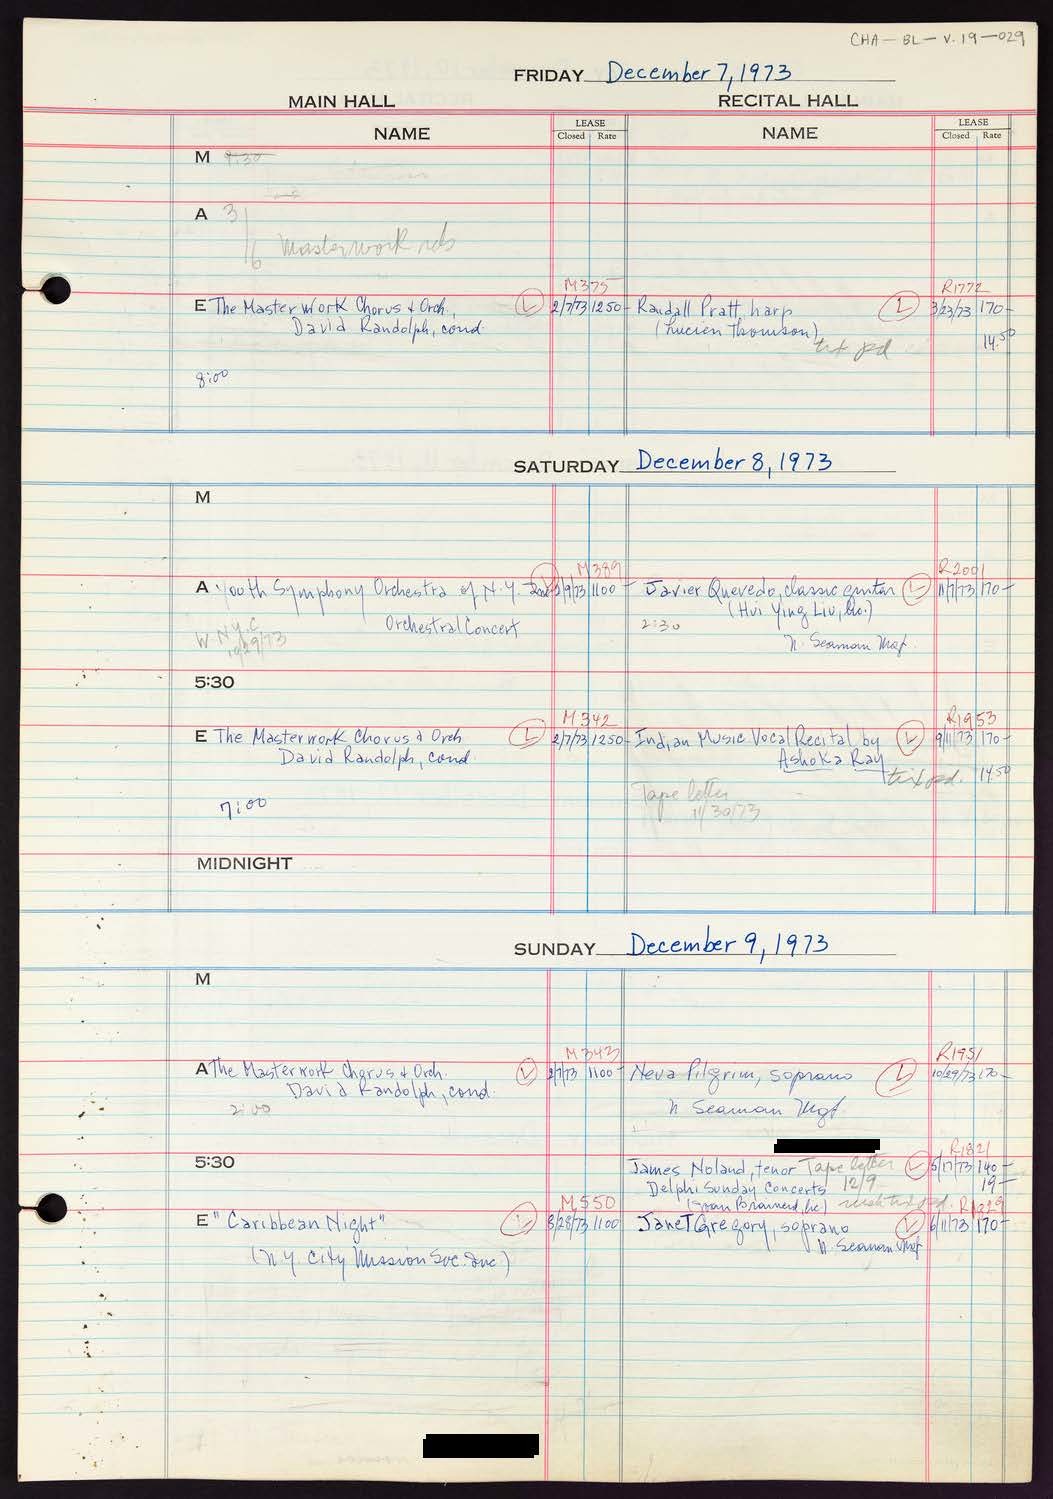 CHA-BL-V.19-029
FRIDAY December 7, 1973
MAIN HALL
RECITAL HALL
NAME
LEASE
Closed Rate
NAME
LEASE
Closed Rate
M 9:30
A 3
6 Masterwork reh
M375
R1772
E The Masterwork Chorus & Orch., L 2/7/73 1250-
David Randolph, cond.
8:00
Randall Pratt, harp L 3/23/73 170-
(Lucien Thomson) tix pd 14.50
SATURDAY December 8, 1973
M
M389
R2001
A Youth Symphony Orchestra of N.Y. 2nd 1100-
Orchestral Concert
W.N.Y.C
10/29/73
Javier Quevedo, classic guitar L 11/7/73 170-
(Hui Ying Liu,
2:30
N. Seaman Mgt.
5:30
M342
R1953
E The Masterwork Chorus & Orch L 2/7/73 1250-
David Randolph, cond.
7:00
Indian Music Vocal Recital by L 9/11/73 170-
Ashoka Ray tix pd. 14.50
Tape letter
11/30/73
MIDNIGHT
SUNDAY December 9, 1973
M
M343
R1951
A The Masterwork Chorus & Orch. L 2/7/73 1100-
David Randolph, cond.
2:00
Neva Pilgrim, soprano L 10/29/73 170-
N Seaman Mgt
5:30
R1821
James Noland, tenor Tape letter L 5/17/73 140-
Delphi Sunday Concerts 12/9 19-
tix pd.
M550
E "Caribbean Night" L 8/28/73 1100
(N.Y. City Mission Soc. Inc)
Janet Gregory, soprano L 6/11/73 170-
N. Seaman Mgt